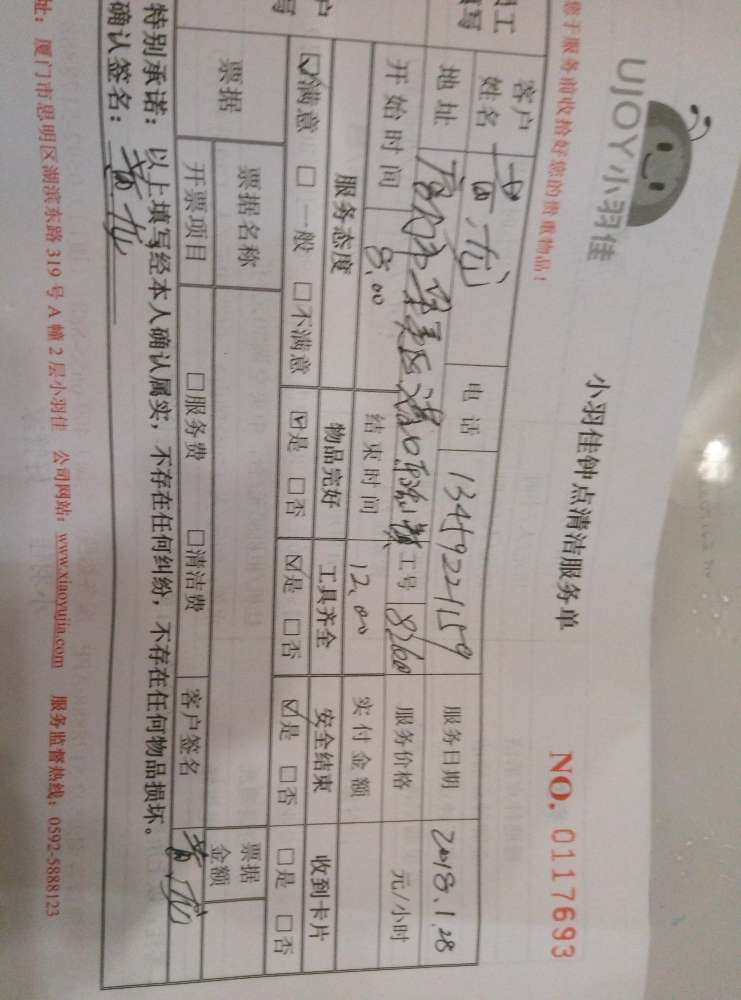 UJOY小羽佳
小羽佳钟点清洁服务单
NO. 0117693
您于服务前收拾好您的贵重物品！
客户姓名 电话 13459221159 服务日期 2018.1.28
地址 工号 8260 服务价格 元/小时
开始时间 8.00 结束时间 12.00 实付金额
服务态度 物品完好 工具齐全 安全结束 收到卡片
☑满意 □一般 □不满意 ☑是 □否 ☑是 □否 ☑是 □否 □是 □否
票据 票据名称 票据金额
开票项目 □服务费 □清洁费 客户签名
特别承诺：以上填写经本人确认属实，不存在任何纠纷，不存在任何物品损坏。
确认签名：
址：厦门市思明区湖滨东路 319 号 A 幢 2 层小羽佳 公司网站：www.xiaoyujia.com 服务监督热线：0592-5888123